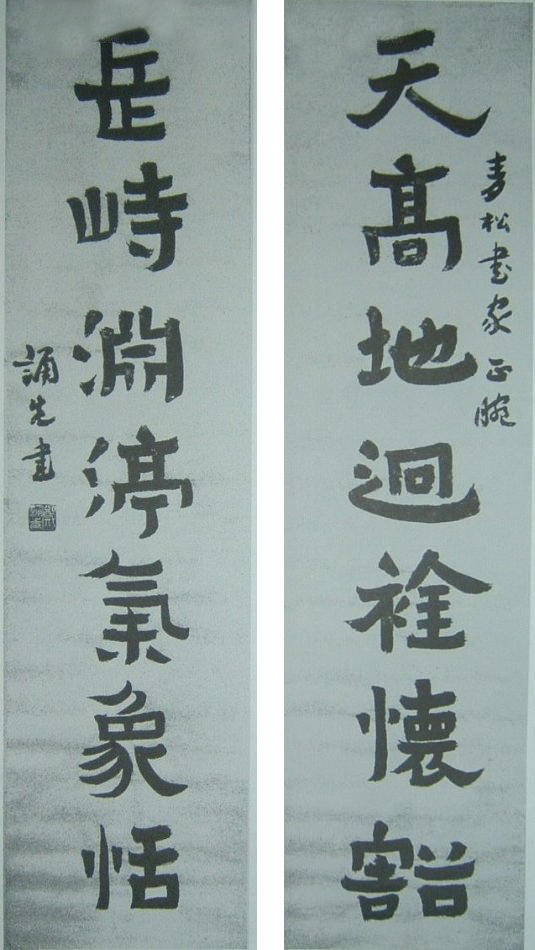 天髙地迥䘳懷豁
青松書家正腕
岳峙淵渟氣象恬
誦先書